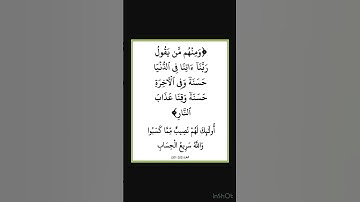 ﴿وَمِنْهُم مَّن يَقُولُ
رَبَّنَآ ءَاتِنَا فِى ٱلدُّنْيَا
حَسَنَةً وَفِى ٱلْأَخِرَةِ
حَسَنَةً وَقِنَا عَذَابَ
ٱلنَّارِ﴾
أُولَٰئِكَ لَهُمْ نَصِيبٌ مِّمَّا كَسَبُوا
وَاللَّهُ سَرِيعُ الْحِسَابِ
InShOt